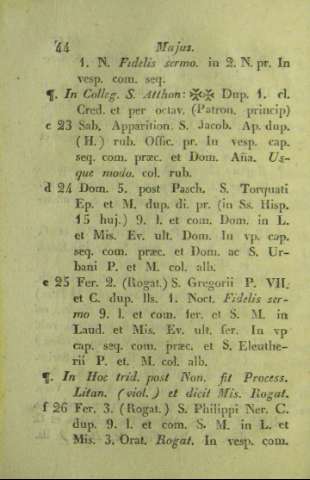 44 Majus.
1. N. Fidelis sermo. in 2. N. pr. In
vesp. com. seq.
¶. In Colleg. S. Atthon: ✠✠ Dup. 1. cl.
Cred. et per octav. (Patron. princip)
c 23 Sab. Apparition. S. Jacob. Ap. dup.
(H.) rub. Offic. pr. In vesp. cap.
seq. com. præc. et Dom. Aña. Us-
que modo. col. rub.
d 24 Dom. 5. post Pasch. S. Torquati
Ep. et M. dup. di. pr. (in Ss. Hisp.
15 huj.) 9. l. et com. Dom. in L.
et Mis. Ev. ult. Dom. In vp. cap.
seq. com. præc. et Dom. ac S. Ur-
bani P. et M. col. alb.
e 25 Fer. 2. (Rogat.) S. Gregorii P. VII.
et C. dup. lls. 1. Noct. Fidelis ser-
mo 9. l. et com. fer. et S. M. in
Laud. et Mis. Ev. ult. fer. In vp
cap. seq. com. præc. et S. Eleuthe-
rii P. et. M. col. alb.
¶. In Hoc trid. post Non. fit Process.
Litan. (viol.) et dicit Mis. Rogat.
f 26 Fer. 3. (Rogat.) S. Philippi Ner. C.
dup. 9. l. et com. S. M. in L. et
Mis. 3. Orat. Rogat. In vesp. com.